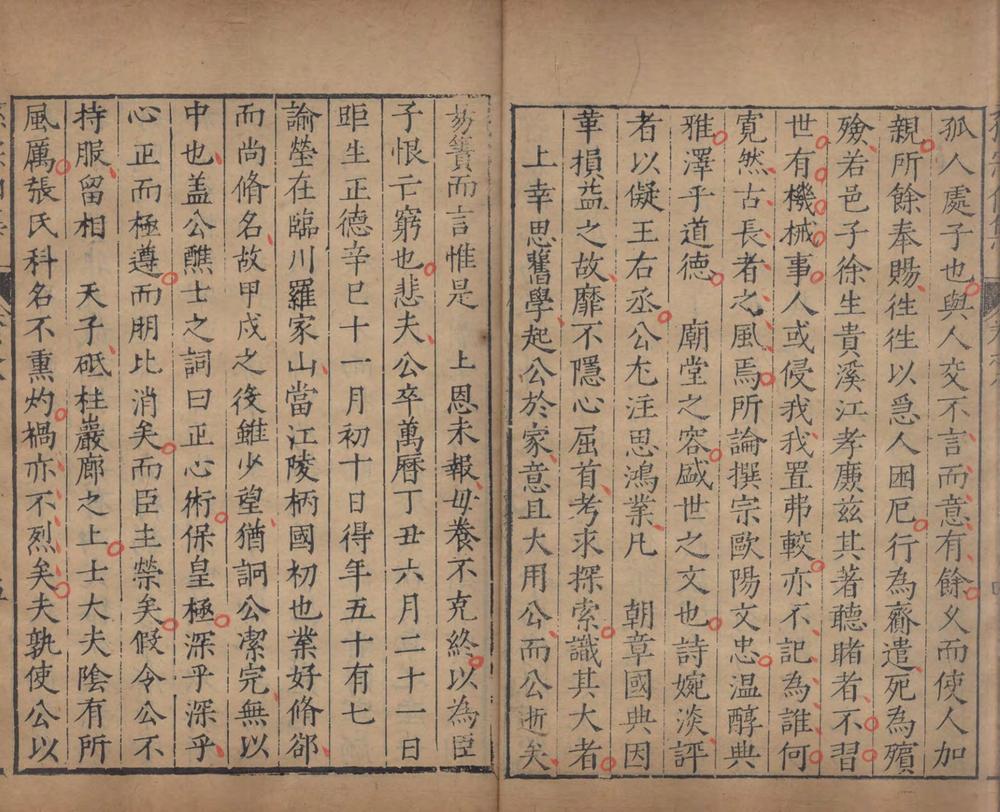 孤人處子也與人交不言而意有餘久而使人加
親所餘奉賜徃徃以急人困厄行為齎遣死為殯
殮若邑子徐生貴溪江孝廉玆其著聽睹者不習
世有機械事人或侵我我置弗較亦不記為誰何
寛然古長者之風焉所論撰宗歐陽文忠温醇典
雅澤乎道德　廟堂之容盛世之文也詩婉淡評
者以儗王右丞公尤注思鴻業凡　朝章國典因
革損益之故靡不隱心屈首考求探索識其大者
上幸思舊學起公於家意且大用公而公逝矣
昜簀而言惟是　上恩未報母養不克終以為臣
子恨亡窮也悲夫公卒萬曆丁丑六月二十一日
距生正德辛巳十一月初十日得年五十有七
論塋在臨川羅家山當江陵柄國初也業好脩郤
而尚脩名故甲戌之後雖少望猶詗公潔完無以
中也盖公醮士之詞曰正心術保皇極深乎深乎
心正而極遵而朋比消矣而臣主榮矣假令公不
持服留相　天子砥柱巖廊之上士大夫陰有所
風厲張氏科名不熏灼禍亦不烈矣夫孰使公以